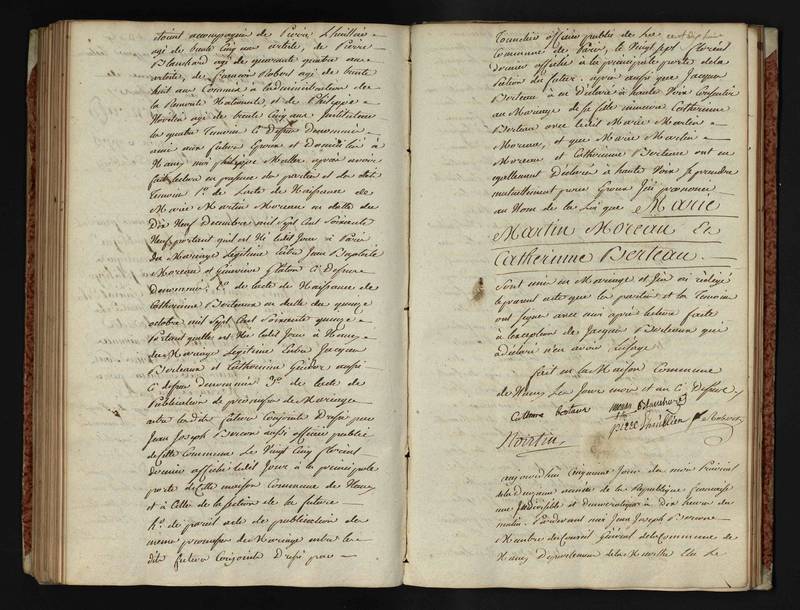 étant accompagnés de Pierre Lhuillier
agé de trente cinq ans artiste, de Pierre
Blanchard agé de quarante quatre ans
artiste, de francois Robert agé de trente
huit ans Commis à Ladministration de
la Nationale, et de Philippe
agé de trente Cinq ans Instituteur
les quatre Temoins Cy Dessus denommés
amis aux futurs Epoux et Domiciliés à
Nancy moi philippe Mallet après avoir
fait lecture en presence des parties et des dits
Temoins 1º. de Lacte de Naissance de
Marie Martin Moreau en datte du
Dix Neuf Decembre mil Sept Cent Soixante
Neuf portant quil est Né ledit Jour à Paris
du Mariage Légitime entre Jean Baptiste
Moreau et Genevieve Cy Dessus
denommés; 2º. de Lacte de Naissance de
Catherinne Berteaux en datte du quinze
octobre mil Sept Cent Soixante quinze
Portant quelle est Née ledit Jour à Nancy
du Mariage Légitime Entre Jacques
Berteaux et Catherinne aussi
Cy dessus denommés 3º. de Lacte de
Publication de promesse de Mariage
entre lesdits futurs Conjoints Dressé par
Jean Joseph aussi officier public
de Cette Commune Le Vingt Cinq floreal
dernier affiché ledit Jour à la principale
porte de Cette maison Commune de Nancy
et à Celle de la Section de la future
4º. de pareil acte de publication de
meme promesse de Mariage entre les
dits futurs Conjoints Dressé par
officier public de la
Commune de Paris, le Vingt Sept floreal
dernier affiché à la principale porte de la
Section du futur. après aussi que Jacques
Berteau à eu déclaré à haute Voix Consentir
au Mariage de sa fille mineure Catherinne
Berteau avec ledit Marie Martin
Moreau, et que Marie Martin
Moreau et Catherinne Berteau ont eu
egallement déclaré à haute Voix Se prendre
mutuellement pour Epoux J'ai prononcé
au Nom de la Loi que Marie
Martin Moreau Et
Catherinne Berteau.
Sont unis en Mariage et J'en ai rédigé
le present acte que les parties et les Temoins
ont Signé avec moi après lecture faite
à lexception de Jacques Berteaux qui
a déclaré n'en avoir Lusage
fait en la Maison Commune
de Nancy Les Jour mois et an Cy Dessus
Martin
aujourdhui Cinquieme Jour du mois Prairial
de la deuxieme année de la République française
une Indivisible et democratique à Dix heures du
matin. Pardevant moi Jean Joseph
Membre du Conseil Général de la Commune de
Nancy Departement de la Meurthe Elu Le